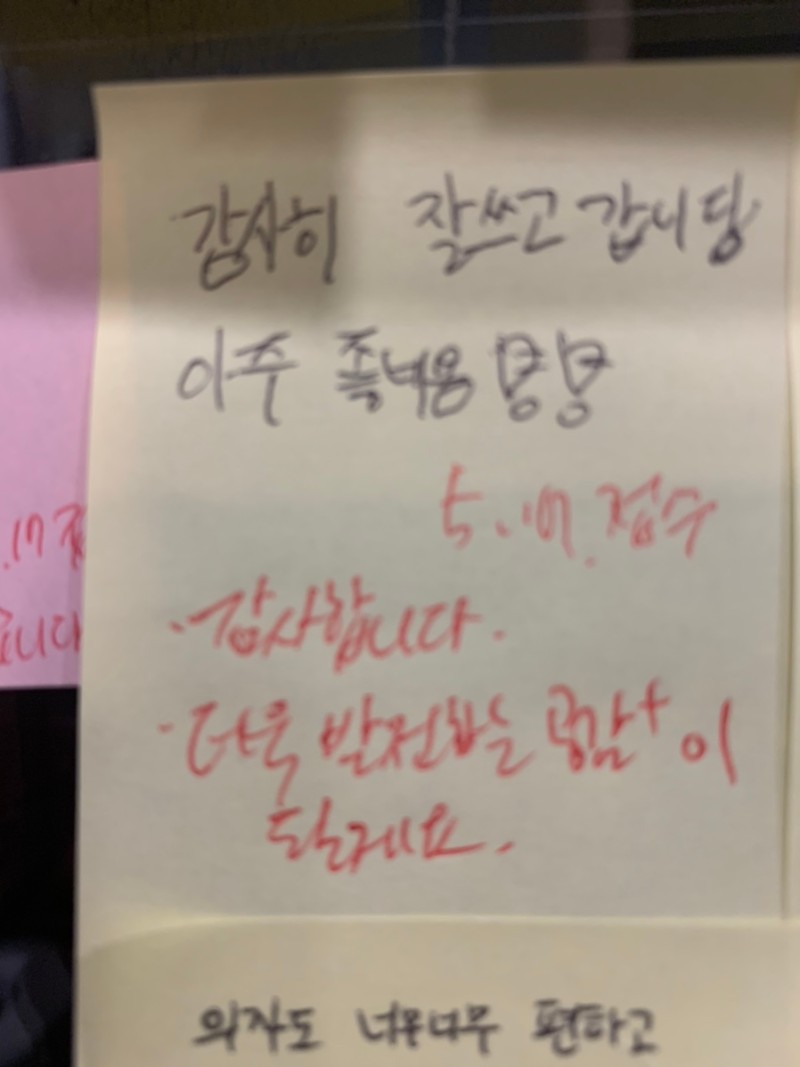 감사히 잘쓰고 갑니딩
아주 족너용 뿅뿅
5.17. 접수
· 감사합니다.
· 더욱 발전하는 공감+이
될게요.
.17 접
니다
의자도 너무너무 편하고